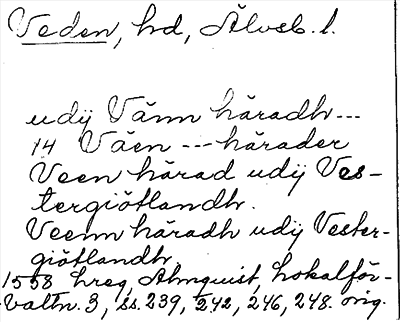 Veden, hd, Älvsb. l.
udÿ Vänn häradh---
14 Väen --- härader
Veen härad udÿ Ves-
tergiötlandh.
Veenn häradh udÿ Vester-
giötlandh
1558 hreg, Almquist, Lokalför-
valtn. 3, ss. 239, 242, 246, 248. orig.